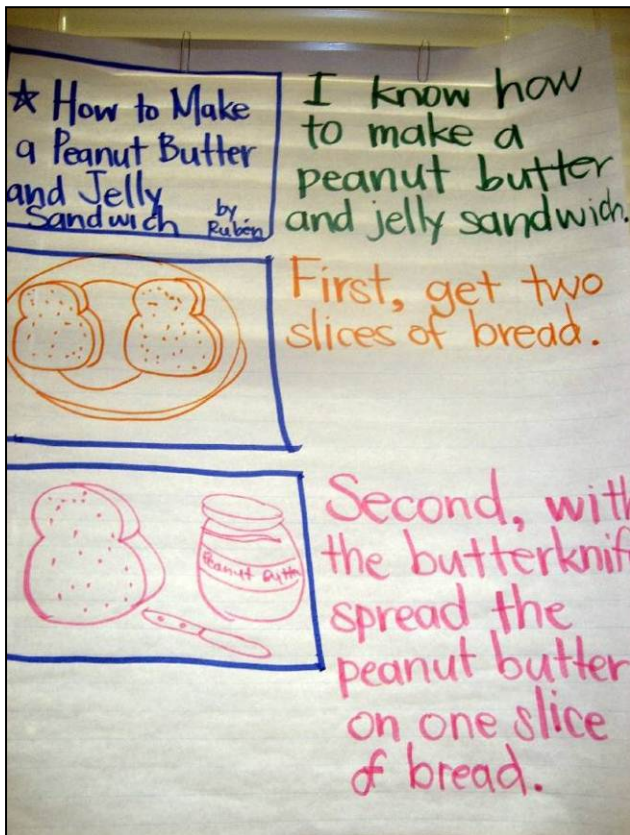 ☆ How to Make
a Peanut Butter
and Jelly
Sandwich
by
Rubén
I know how
to make a
peanut butter
and jelly sandwich.
First, get two
slices of bread.
Peanut Butte
Second, with
the butterknif
spread the
peanut butter
on one slice
of bread.